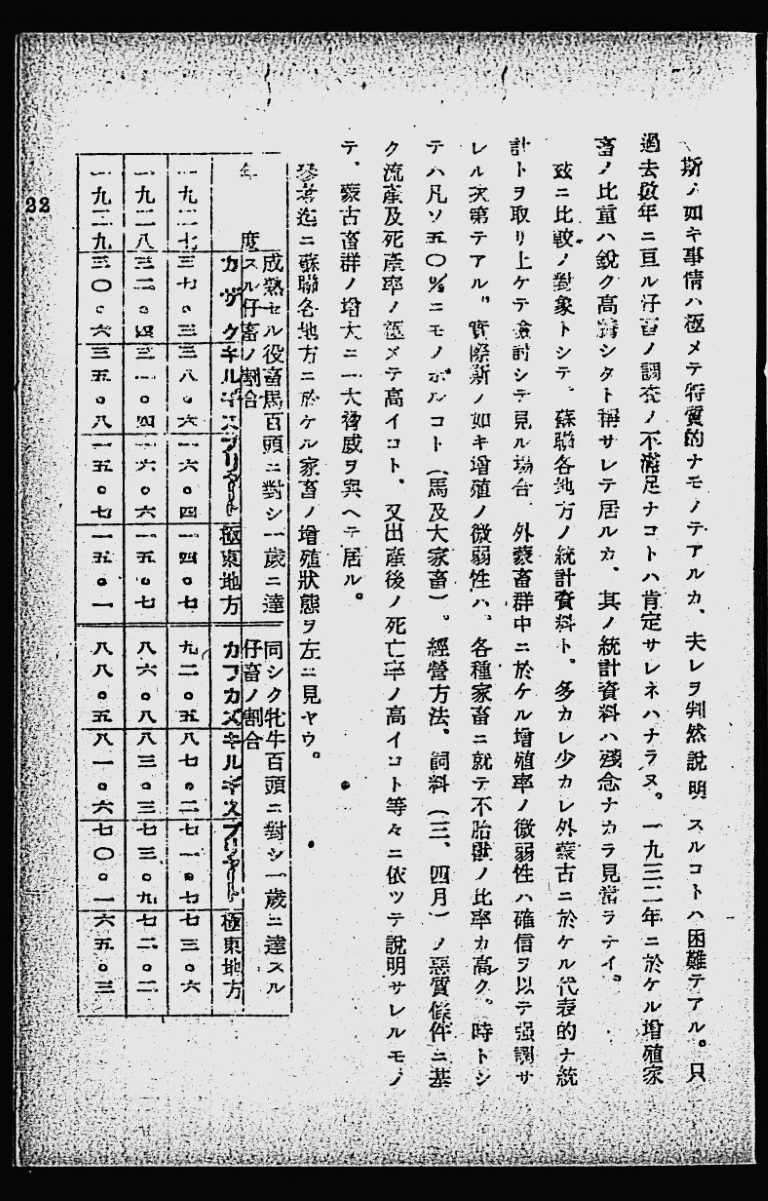 斯ノ如キ事情ハ極メテ特質的ナモノテアルカ、夫レヲ判然說明スルコトハ困難テアル。只
過去數年ニ亘ル仔畜ノ調查ノ不滿足ナコトハ肯定サレネハナラヌ。一九三二年ニ於ケル增殖家
畜ノ比重ハ銳ク高騰シタト稱サレテ居ルカ、其ノ統計資料ハ殘念ナカラ見當ラテイ。
玆ニ比較ノ對象トシテ、蘇聯各地方ノ統計資料ト、多カレ少カレ外蒙古ニ於ケル代表的ナ統
計トヲ取リ上ケテ檢討シテ見ル場合、外蒙畜群中ニ於ケル增殖率ノ微弱性ハ確信ヲ以テ强調サ
レル次第テアル。實際斯ノ如キ增殖ノ微弱性ハ、各種家畜ニ就テ不胎獸ノ比率カ高ク。時トシ
テハ凡ソ五〇%ニモノホルコト(馬及大家畜)。經營方法、飼料(三、四月)ノ惡質條件ニ基
ク流產及死產率ノ極メテ高イコト、又出產後ノ死亡率ノ高イコト等々ニ依ツテ說明サレルモノ
テ、蒙古畜群ノ增大ニ一大脅威ヲ與ヘテ居ル。
參考迄ニ蘇聯各地方ニ於ケル家畜ノ增殖狀態ヲ左ニ見ヤウ。
年度
成熟セル役畜馬百頭ニ對シ一歲ニ達
スル仔畜ノ割合
同シク牝牛百頭ニ對シ一歲ニ達スル
仔畜ノ割合
カザク キルギス ブリヤート 極東地方 カフカズ キルギス ブリヤート 極東地方
一九二七 三七。三 三八。六 一六。四 一四。七 九二。五 八七。二 七一。七 七三。六
一九二八 三二。四 三一。四 一六。六 一五。七 八六。八 八三。三 七三。九 七二。二
一九二九 三〇。六 三五。八 一五。七 一五。一 八八。五 八一。六 七〇。一 六五。三
22